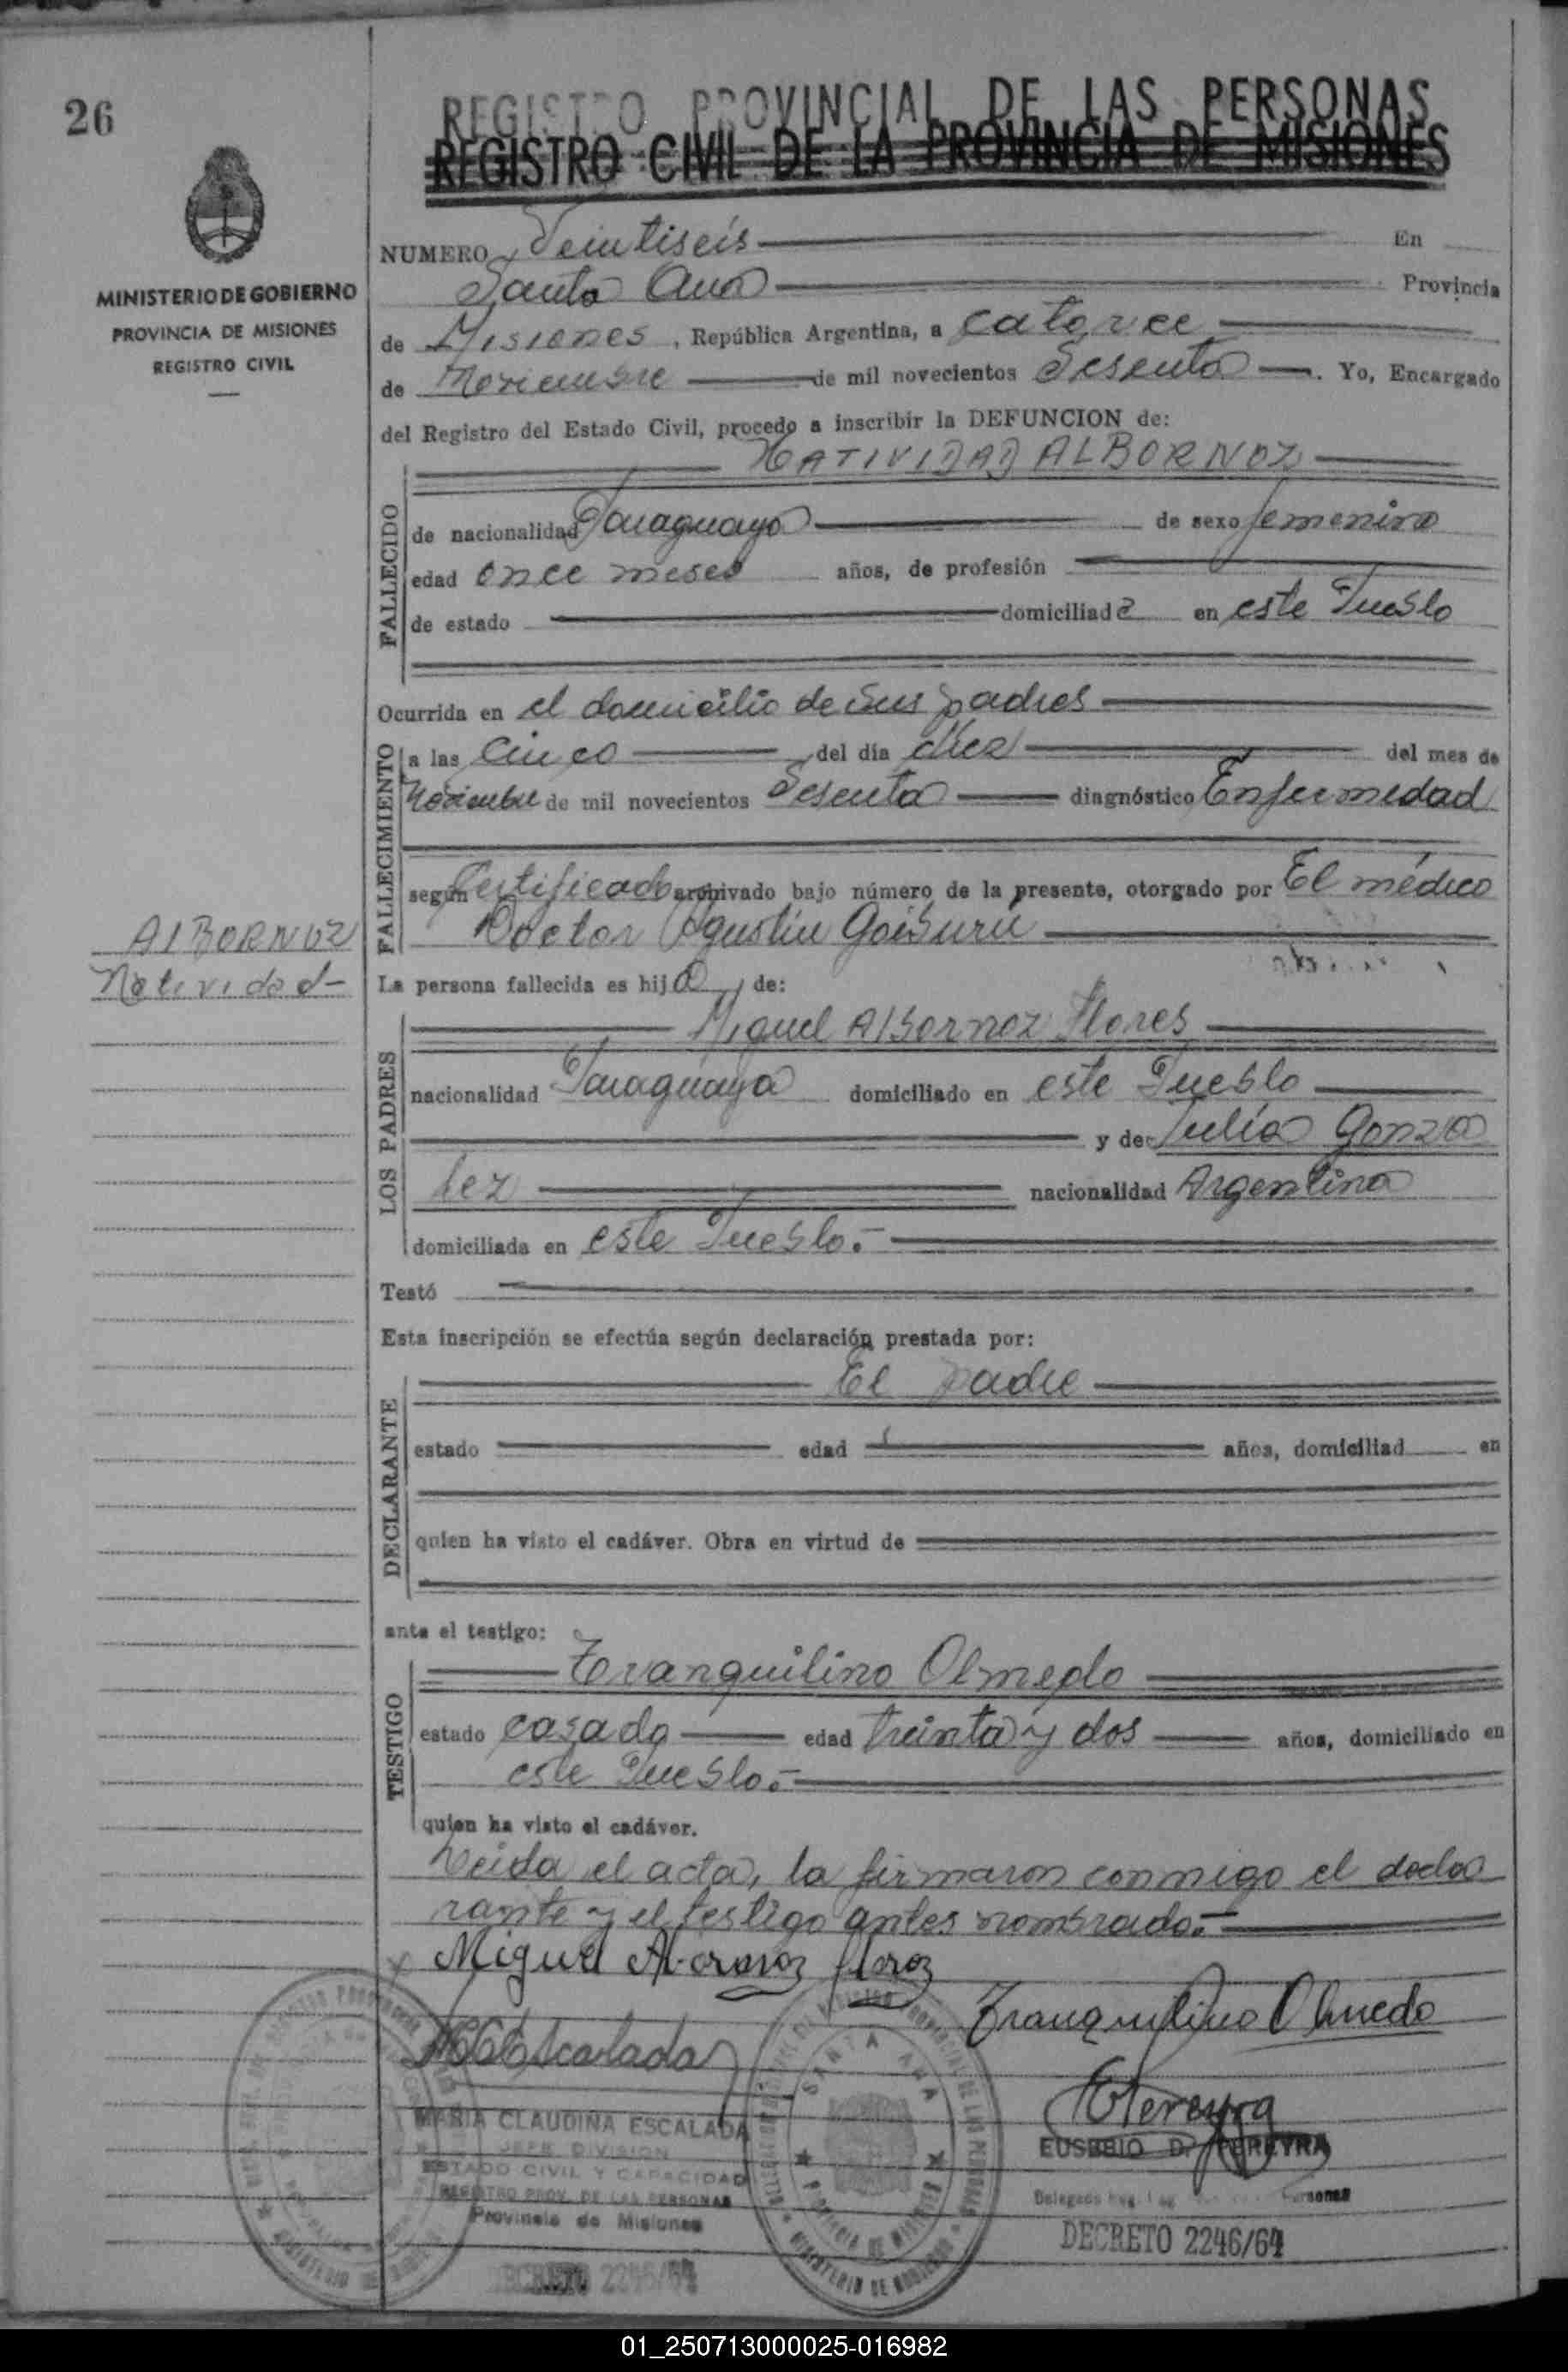 26
REGISTRO PROVINCIAL DE LAS PERSONAS
REGISTRO CIVIL DE LA PROVINCIA DE MISIONES
MINISTERIO DE GOBIERNO
PROVINCIA DE MISIONES
REGISTRO CIVIL
NUMERO Veintiseis En
Santa Ana Provincia
de Misiones, República Argentina, a catorce
de Noviembre de mil novecientos Sesenta. Yo, Encargado
del Registro del Estado Civil, procedo a inscribir la DEFUNCION de:
NATIVIDAD ALBORNOZ
FALLECIDO
de nacionalidad Paraguaya de sexo femenino
edad once meses años, de profesión
de estado domiciliada en este Pueblo
Ocurrida en el domicilio de sus padres
FALLECIMIENTO
a las Cinco del día diez del mes de
Noviembre de mil novecientos Sesenta diagnóstico Enfermedad
según Certificado archivado bajo número de la presente, otorgado por El médico
Doctor Agustín Goiburú
ALBORNOZ
Natividad-
La persona fallecida es hija de:
LOS PADRES
Miguel Albornoz Flores
nacionalidad Paraguaya domiciliado en este Pueblo
y de: Julia Gonza
lez nacionalidad Argentina
domiciliada en este Pueblo.-
Testó
Esta inscripción se efectúa según declaración prestada por:
DECLARANTE
El padre
estado edad años, domiciliad en
quien ha visto el cadáver. Obra en virtud de
ante el testigo:
TESTIGO
Tranquilino Olmedo
estado casado edad treinta y dos años, domiciliado en
este Pueblo.-
quien ha visto el cadáver.
Leida el acta, la firmaron conmigo el decla
rante y el testigo antes nombrado.-
Miguel Albornoz florez
Tranquilino Olmedo
Escalada
Pereyra
MARIA CLAUDINA ESCALADA
JEFE DIVISION
ESTADO CIVIL Y CAPACIDAD
REGISTRO PROV. DE LAS PERSONAS
Provincia de Misiones
DECRETO 2246/64
SANTA ANA
PROVINCIA DE MISIONES
MINISTERIO DE GOBIERNO
EUSEBIO D. PEREYRA
Delegado Personas
DECRETO 2246/64
01_250713000025-016982